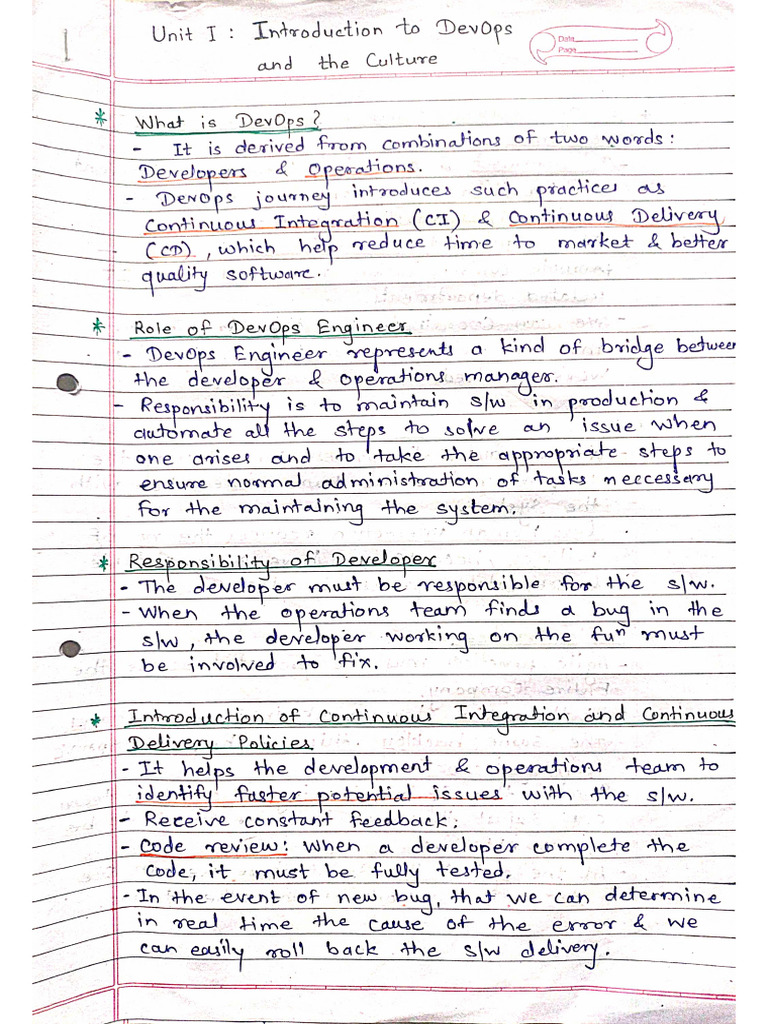 1
Unit I : Introduction to DevOps
and the Culture
Date
Page
* What is DevOps?
- It is derived from combinations of two words:
Developers & Operations.
- DevOps journey introduces such practices as
Continuous Integration (CI) & Continuous Delivery
(CD), which help reduce time to market & better
quality software.
* Role of DevOps Engineer
- DevOps Engineer represents a kind of bridge between
the developer & operations manager.
- Responsibility is to maintain s/w in production &
automate all the steps to solve an issue when
one arises and to take the appropriate steps to
ensure normal administration of tasks neccessary
for the maintaining the system.
* Responsibility of Developer
- The developer must be responsible for the s/w.
- When the operations team finds a bug in the
s/w, the developer working on the fuⁿ must
be involved to fix.
* Introduction of Continuous Integration and Continuous
Delivery Policies
- It helps the development & operations team to
identify faster potential issues with the s/w.
- Receive constant feedback.
- Code review: When a developer complete the
code, it must be fully tested.
- In the event of new bug, that we can determine
in real time the cause of the error & we
can easily roll back the s/w delivery.